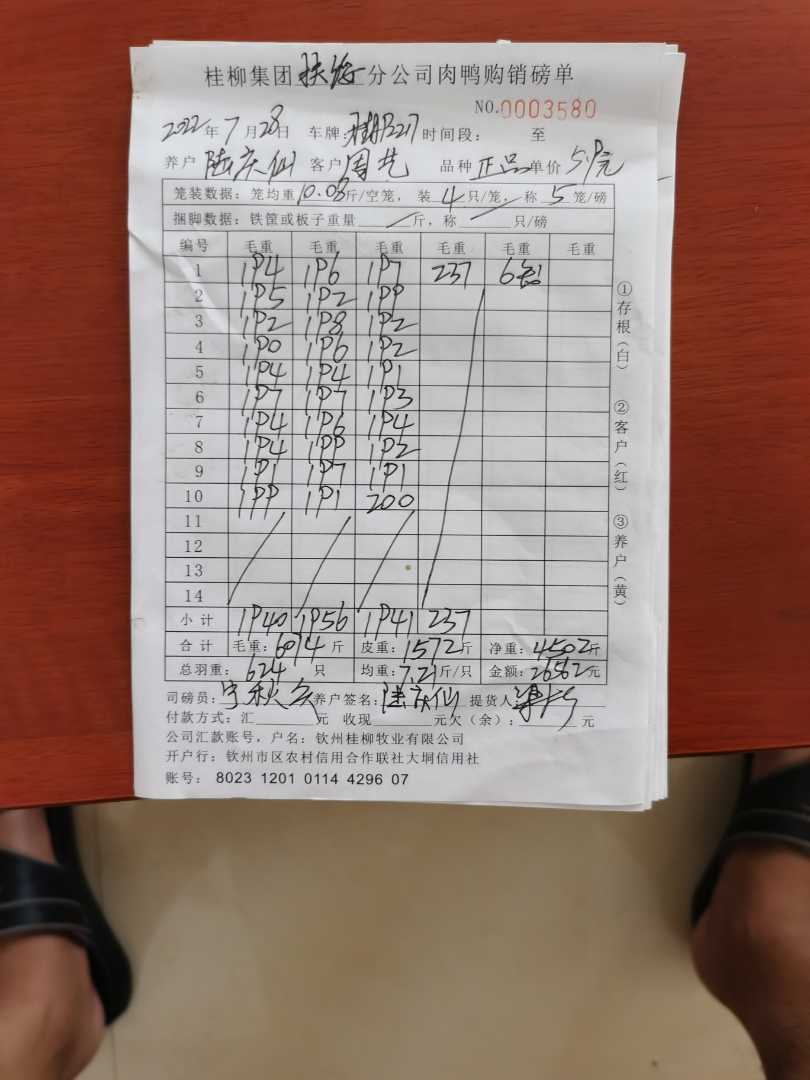 桂柳集团扶绥分公司肉鸭购销磅单
NO.0003580
2022年7月28日 车牌: 时间段: 至
养户 陆庆仙 客户 周 品种 正品 单价 5.9元
笼装数据: 笼均重10.08斤/空笼, 装4只/笼, 称5笼/磅
捆脚数据: 铁筐或板子重量 斤, 称 只/磅
编号 毛重 毛重 毛重 毛重 毛重 毛重
1 194 196 197 237 6
2 195 192 199
3 192 198 192
4 190 196 192
5 194 194 191
6 197 197 193
7 194 196 194
8 194 199 192
9 191 197 191
10 199 191 200
11
12
13
14
小计 1940 1956 1941 237
合计 毛重: 6074斤 皮重: 1572斤 净重: 4502斤
总羽重: 624只 均重: 7.21斤/只 金额: 26562元
司磅员: 宁秋 养户签名: 陆庆仙 提货人:
付款方式: 汇 元 收现 元欠(余): 元
公司汇款账号, 户名: 钦州桂柳牧业有限公司
开户行: 钦州市区农村信用合作联社大垌信用社
账号: 8023 1201 0114 4296 07
①存根(白)
②客户(红)
③养户(黄)